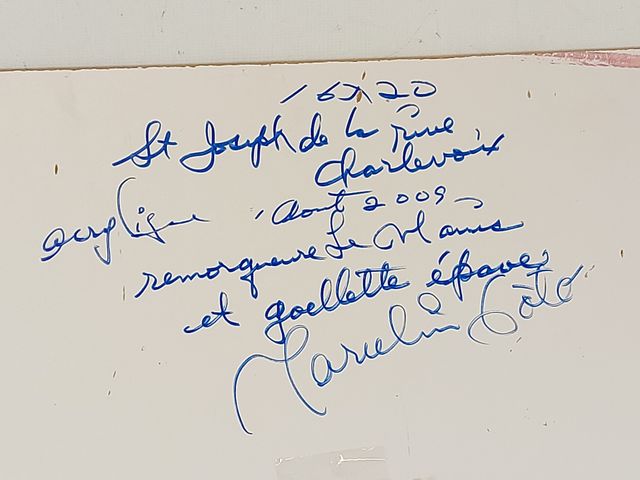 16X20
St Joseph de la rive
Charlevoix
acrylique Aout 2009
remorqueure Le Maris
et goellette épave
Marcelin Côté